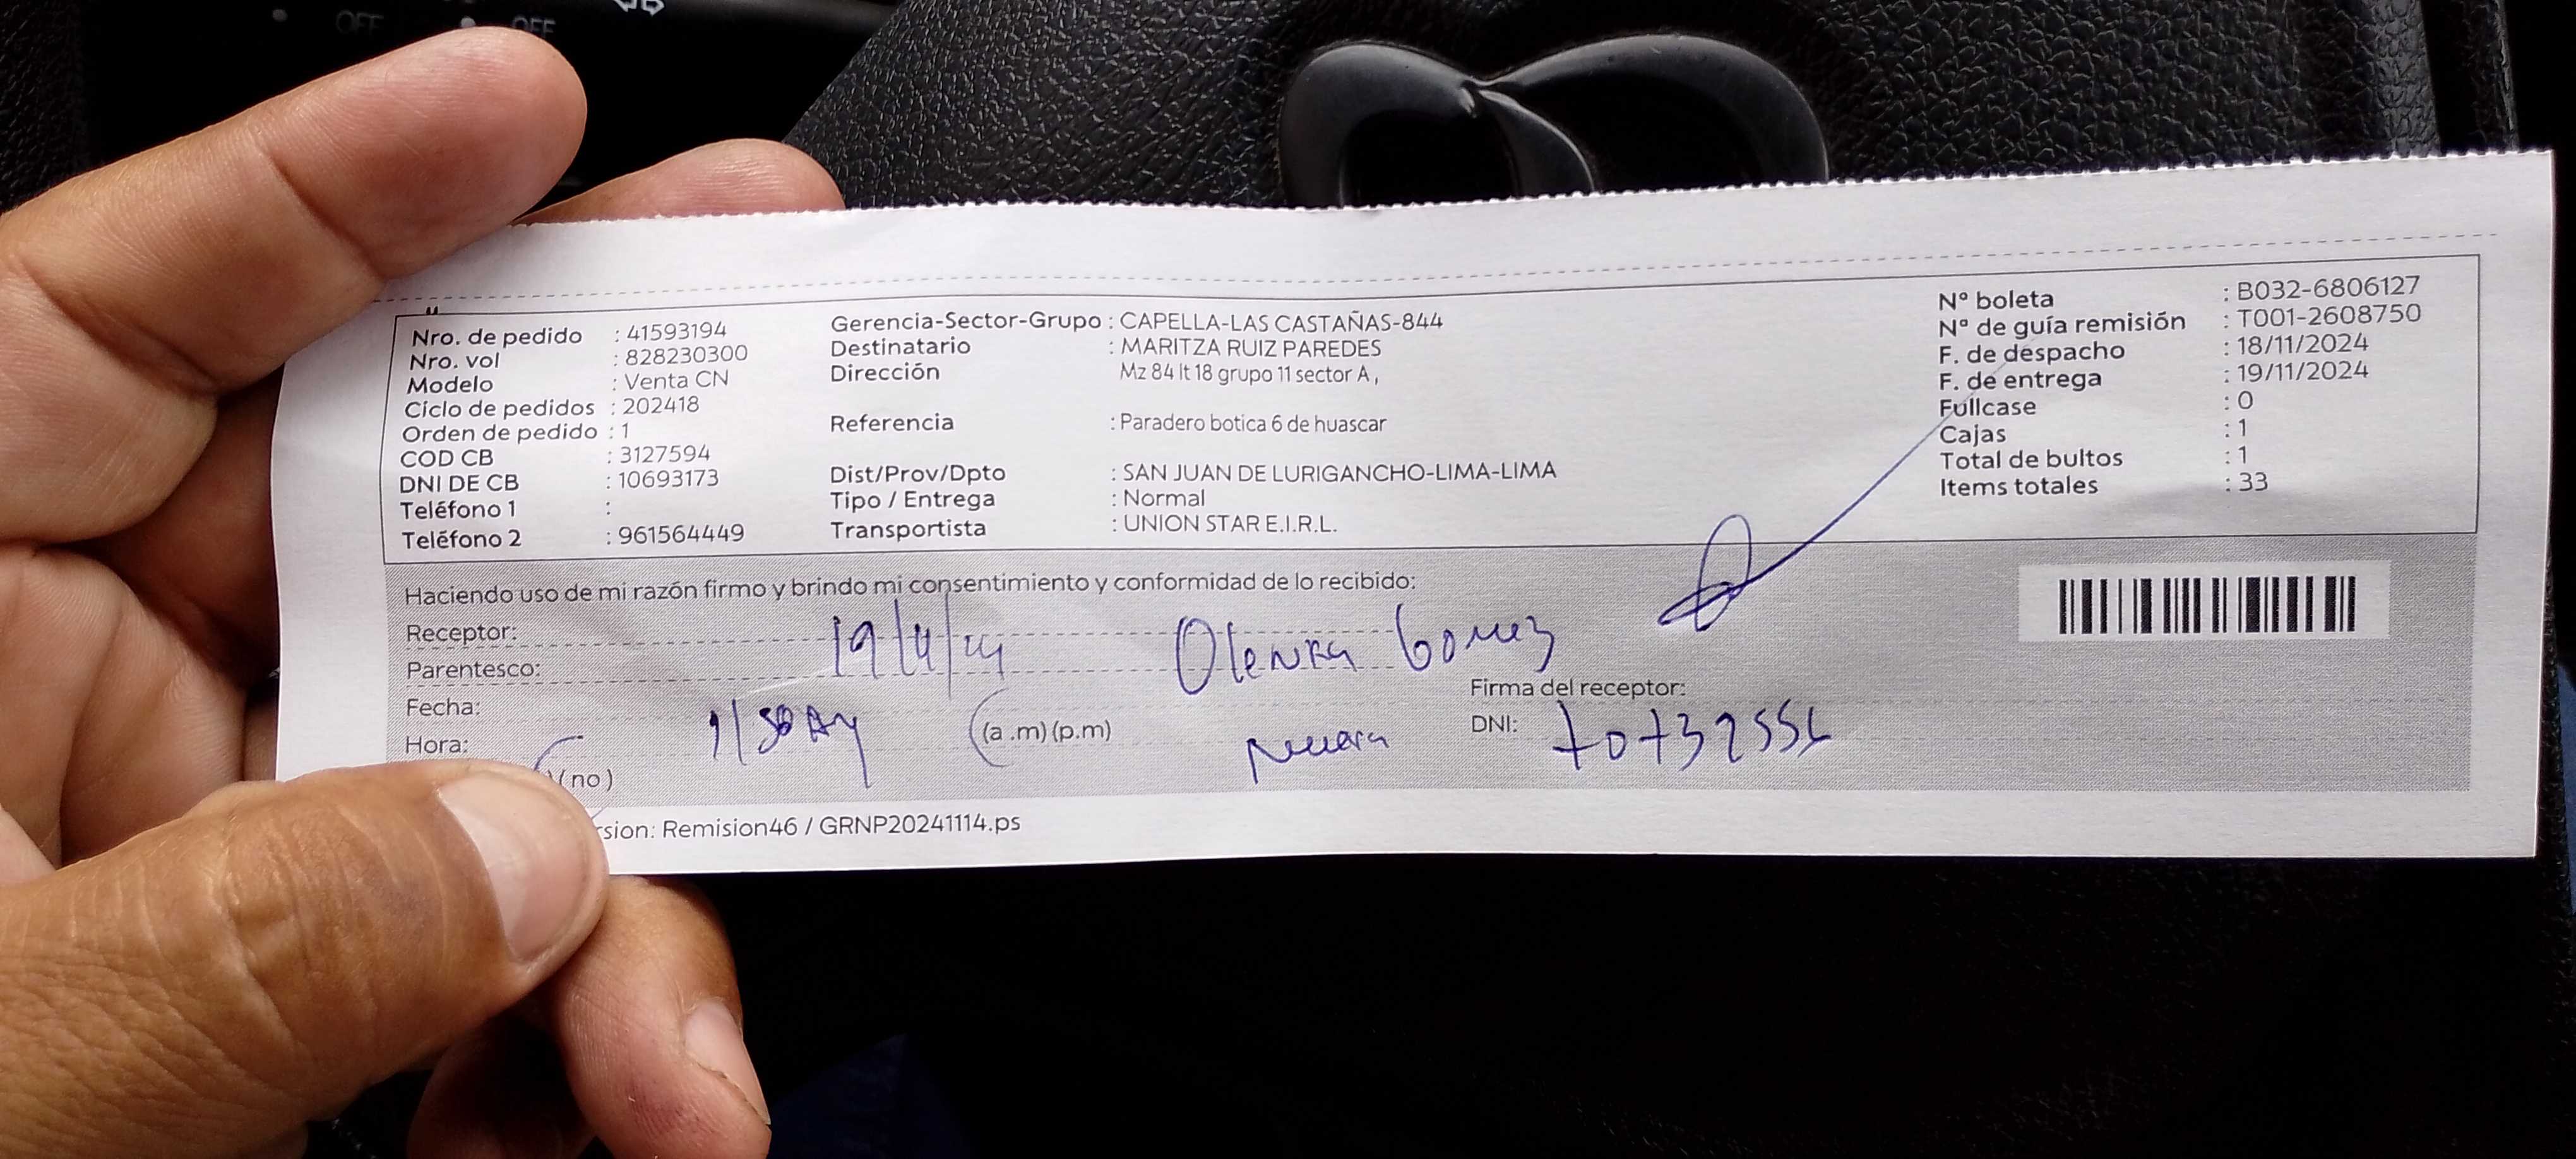 OFF OFF
Nro. de pedido : 41593194
Nro. vol : 828230300
Modelo : Venta CN
Ciclo de pedidos : 202418
Orden de pedido : 1
COD CB : 3127594
DNI DE CB : 10693173
Teléfono 1 :
Teléfono 2 : 961564449
Gerencia-Sector-Grupo : CAPELLA-LAS CASTAÑAS-844
Destinatario : MARITZA RUIZ PAREDES
Dirección Mz 84 lt 18 grupo 11 sector A ,
Referencia : Paradero botica 6 de huascar
Dist/Prov/Dpto : SAN JUAN DE LURIGANCHO-LIMA-LIMA
Tipo / Entrega : Normal
Transportista : UNION STAR E.I.R.L.
N° boleta : B032-6806127
N° de guía remisión : T001-2608750
F. de despacho : 18/11/2024
F. de entrega : 19/11/2024
Fullcase : 0
Cajas : 1
Total de bultos : 1
Items totales : 33
Haciendo uso de mi razón firmo y brindo mi consentimiento y conformidad de lo recibido:
Receptor:
Parentesco: 19/11/24 Olenka Gomez
Fecha: Firma del receptor:
Hora: (a .m) (p.m) Nuera DNI:
(no)
rsion: Remision46 / GRNP20241114.ps